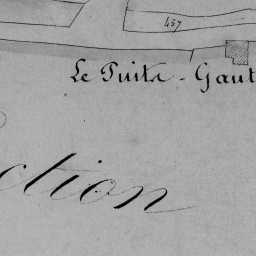 457
Le Puits - Gaut
ction